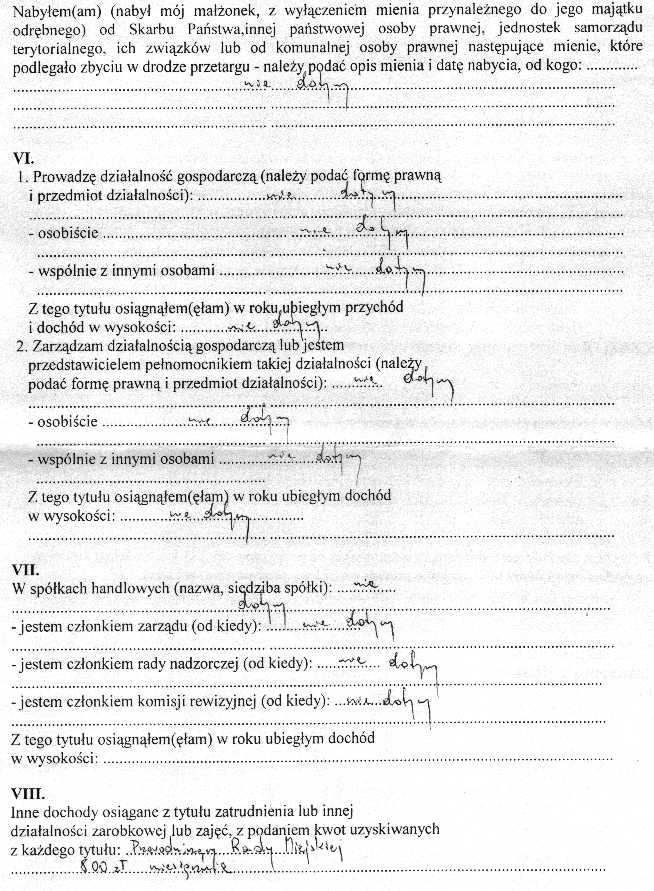 Nabyłem(am) (nabył mój małżonek, z wyłączeniem mienia przynależnego do jego majątku
odrębnego) od Skarbu Państwa,innej państwowej osoby prawnej, jednostek samorządu
terytorialnego, ich związków lub od komunalnej osoby prawnej następujące mienie, które
podlegało zbyciu w drodze przetargu - należy podać opis mienia i datę nabycia, od kogo: .............
nie dotyczy
VI.
1. Prowadzę działalność gospodarczą (należy podać formę prawną
i przedmiot działalności): nie dotyczy
- osobiście nie dotyczy
- wspólnie z innymi osobami nie dotyczy
Z tego tytułu osiągnąłem(ęłam) w roku ubiegłym przychód
i dochód w wysokości: nie dotyczy
2. Zarządzam działalnością gospodarczą lub jestem
przedstawicielem pełnomocnikiem takiej działalności (należy
podać formę prawną i przedmiot działalności): nie dotyczy
- osobiście nie dotyczy
- wspólnie z innymi osobami nie dotyczy
Z tego tytułu osiągnąłem(ęłam) w roku ubiegłym dochód
w wysokości: nie dotyczy
VII.
W spółkach handlowych (nazwa, siędziba spółki): nie
dotyczy
- jestem członkiem zarządu (od kiedy): nie dotyczy
- jestem członkiem rady nadzorczej (od kiedy): nie dotyczy
- jestem członkiem komisji rewizyjnej (od kiedy): nie dotyczy
Z tego tytułu osiągnąłem(ęłam) w roku ubiegłym dochód
w wysokości:
VIII.
Inne dochody osiągane z tytułu zatrudnienia lub innej
działalności zarobkowej lub zajęć, z podaniem kwot uzyskiwanych
z każdego tytułu: Rady Miejskiej
800 zł miesięcznie